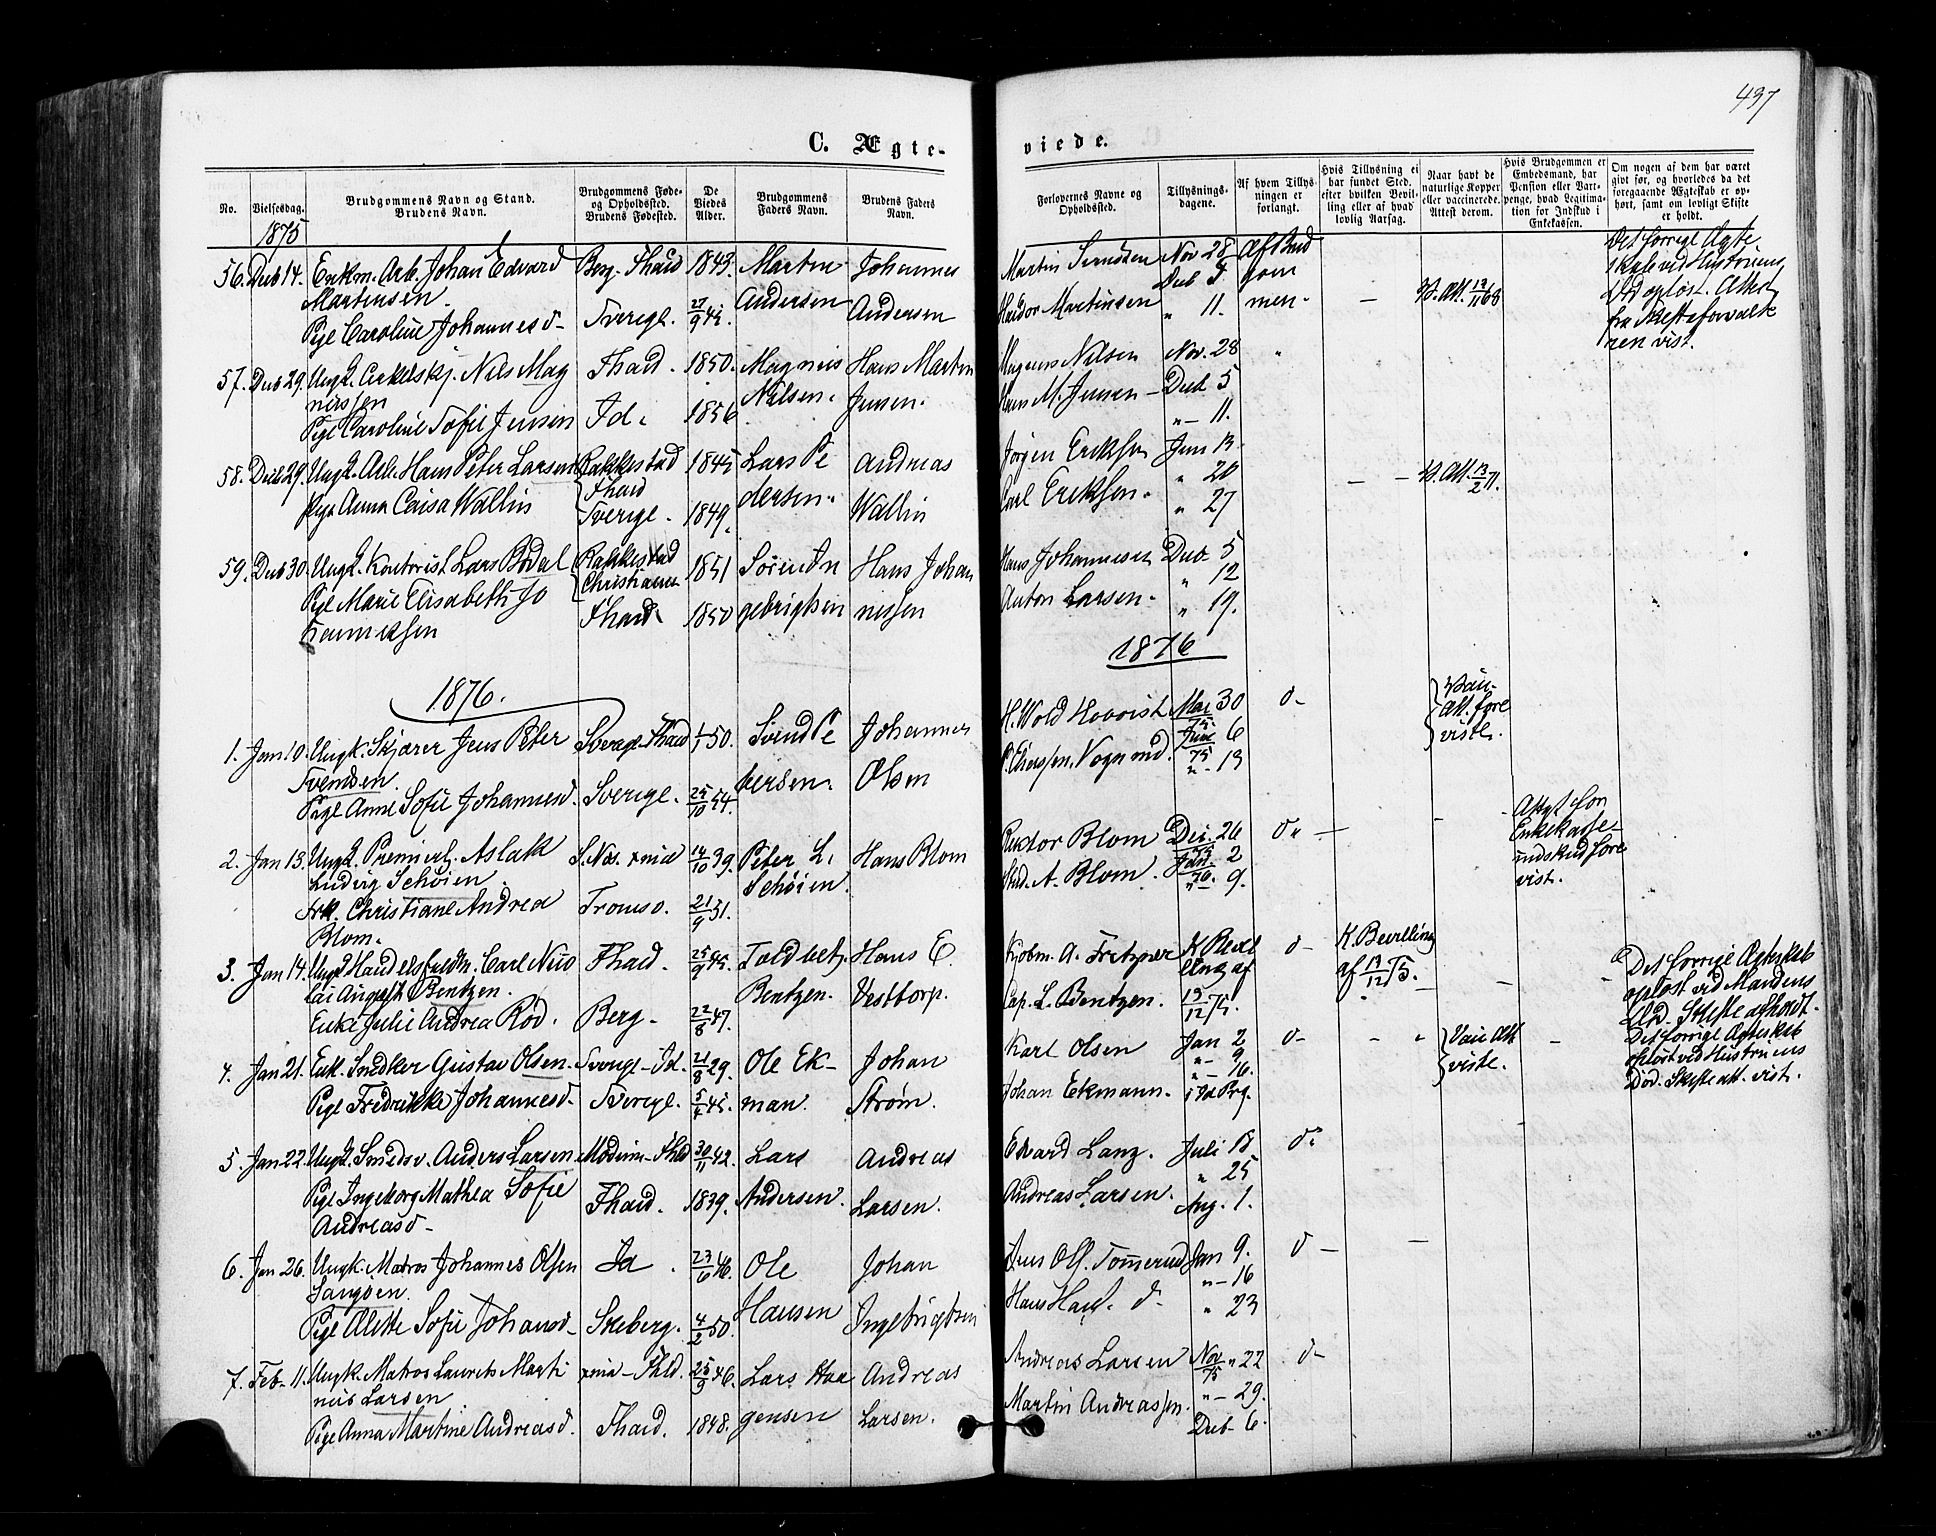 437
C. Ægte-
viede.
No.
Vielsesdag.
Brudgommens Navn og Stand.
Brudens Navn.
Brudgommens Føde-
og Opholdssted.
Brudens Fødested.
De
Viedes
Alder.
Brudgommens
Faders Navn.
Brudens Faders
Navn.
Forlovernes Navne og
Opholdssted.
Tillysnings-
dagene.
Af hvem Tillys-
ningen er
forlangt.
Hvis Tillysning ei
har fundet Sted,
efter hvilken Bevil-
ling eller af hvad
lovlig Aarsag.
Naar havt de
naturlige Kopper
eller vaccinerede.
Attest derom.
Hvis Brudgommen er
Embedsmand, har
Pension eller Vart-
penge, hvad Legitima-
tion for Indskud i
Enkekassen.
Om nogen af dem har været
givt før, og hvorledes da det
foregaaende Ægteskab er op-
hørt, samt om lovligt Skifte
er holdt.
1875
56. Decb 14. Enkm. Arb. Johan Edvard Berg - Fhald 1843. Martin Johannes
Martinsen. Andersen
Pige Caroline Johannesd- Sverige. 27/9 45. Andersen
Martin Svendsen Nov 28 Af Brud
Decb 5. gom
Haldor Martinsen " 11. men - - V. Att. 12/11 68
Det forrige Ægte-
skab ved Hustruens
Død opløst. Attest
fra Skifteforvalte
ren vist.
57. Decb 29. Ungk. Cirkelskj. Nils Mag Fhald. 1850. Magnus Hans Martin
nussen Nilsen. Jensen.
Pige Caroline Sofie Jensen Id. 1856
Magnus Nilsen Nov. 28 "
Hans M. Jensen - Decb 5
" - 11.
58. Decb 29. Ungk. Arb. Hans Peter Larsen Rakkestad 1845 Lars Pe Andreas
Fhald dersen.
Pige Anna Caisa Wallin Sverige. 1849. Wallin
Jørgen Eriksen Juni 13
" 20 - - V. Att. 13/2 71.
Carl Eriksen. " 27
59. Decb 30. Ungk. Kontorist Lars Bødal Rakkestad 1851 Søren In Hans Johan
Christiania
Pige Marie Elisabeth Jo Fhald 1850 gebrigtsen nessen
hannessen
Hans Johannesen Decb 5
" 12
Anton Larsen. " 19.
1876
1876.
1. Jan 10. Ungk. Skjærer Jens Peter Sverige - Fhald 1/1 50. Svend Pe Johannes
Svendsen. tersen. Olsen
Pige Anne Sofie Johannesd. Sverige. 25/10 54.
H. Wold Mai 30 d-
75 Juni 6
75 " - 13
Vac.
Att. fore
viste.
2. Jan 13. Ungk. Premierl. Aslak 14/10 39. Peter L. Hans Blom
Ludvig Schøien. Schøien.
Frk. Christiane Andrea Tromsø. 21/9 51.
Blom.
Rektor Blom Dec. 26 d" -
75 Jan. 2
Stud. A. Blom. 76. " 9.
Attest for
Enkekasse-
indskud fore
vist.
3. Jan 14. Ungk Handelsfuldm. Carl Nico Fhald. 25/9 45. Toldbetj. Hans E.
lai August Bentzen. Bentzen. Vesttorp.
Enke Julie Andrea Rød. Berg - 22/8 47.
Kjøbm. A. Fretzner K. Bevil d- K. Bevilling
ling af af 13/12 75.
Cap. L. Bentzen. 13/12 75.
Det forrige Ægteskab
opløst ved Mandens
Død. Skifte afholdt.
4. Jan 21. Enk. Snedker Gustav Olsen. Sverige - Id. 21/8 29. Ole Ek- Johan
Pige Fredrikke Johannesd. Sverige. 5/4 45. man. Strøm.
Karl Olsen Jan 2 d-
" - 9
" - 16.
Johan Eckmann. i Id Prg.
Vac. Att
viste.
Det forrige Ægteskab
opløst ved Hustruens
Død. Skifteatt. vist.
5. Jan 22. Ungk. Smedsv. Anders Larsen Modum - Fhld 30/11 42. Lars Andreas
Pige Ingeborg Mathea Sofie Fhald. 1839. Andersen. Larsen.
Andreasd -
Edvard Lang. Juli 18 d"
" 25
Andreas Larsen. Aug. 1.
6. Jan 26. Ungk. Matros Johannes Olsen Id. 23/6 46. Ole Johan
Langøen. Hansen
Pige Alette Sofie Johansd - Skeberg. 4/2 50. Ingebrigtsen
Jens Ols. Tommerud Jan 9. d -
" - 16
Hans Hans. d. " 23
7. Feb - 11. Ungk. Matros Laurits Marti xnia - Fhld. 25/9 46. Lars Haa Andreas
nius Larsen. gensen Larsen.
Pige Anna Martine Andreasd. Fhald. 1848.
Andreas Larsen Nov " 22 d-
75
" - 29.
Martin Andreassen. Decb - 6.